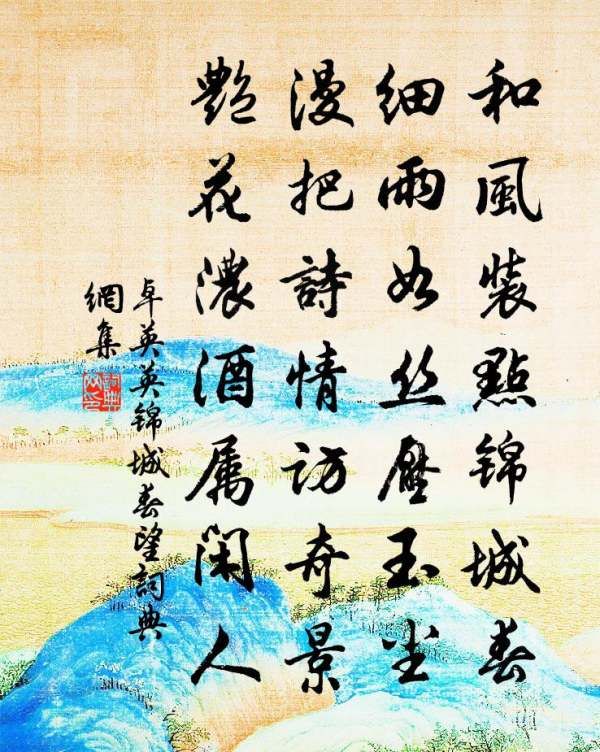 和風裝點锦城春
細雨如丝壓玉尘
漫把詩情访奇景
艷花濃酒属闲人
卓英英锦城春望詞典
網集